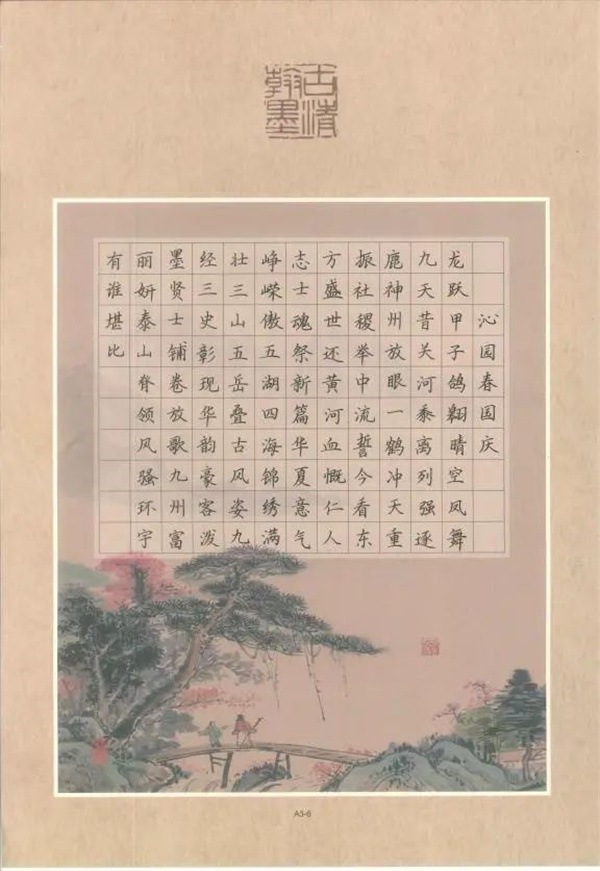 古清
翰墨
沁园春国庆
龙跃甲子鸽翱晴空凤舞
九天昔关河黍离列强逐
鹿神州放眼一鹤冲天重
振社稷举中流誓今看东
方盛世还黄河血慨仁人
志士魂祭新篇华夏意气
峥嵘傲五湖四海锦绣满
壮三山五岳叠古风姿九
经三史彰现华韵豪客泼
墨贤士铺卷放歌九州富
丽妍泰山脊领风骚环宇
有谁堪比
A3-6